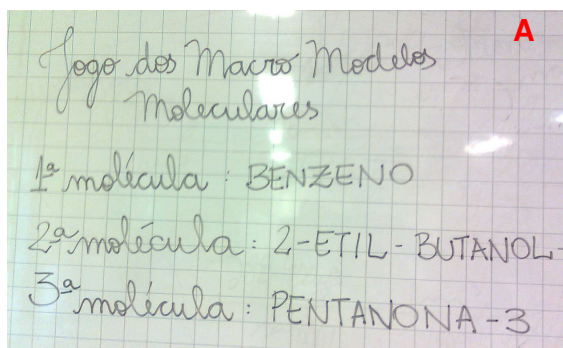 A
Jogo dos Macro Modelos
Moleculares
1ª molécula: BENZENO
2ª molécula: 2-ETIL-BUTANOL-
3ª molécula: PENTANONA-3